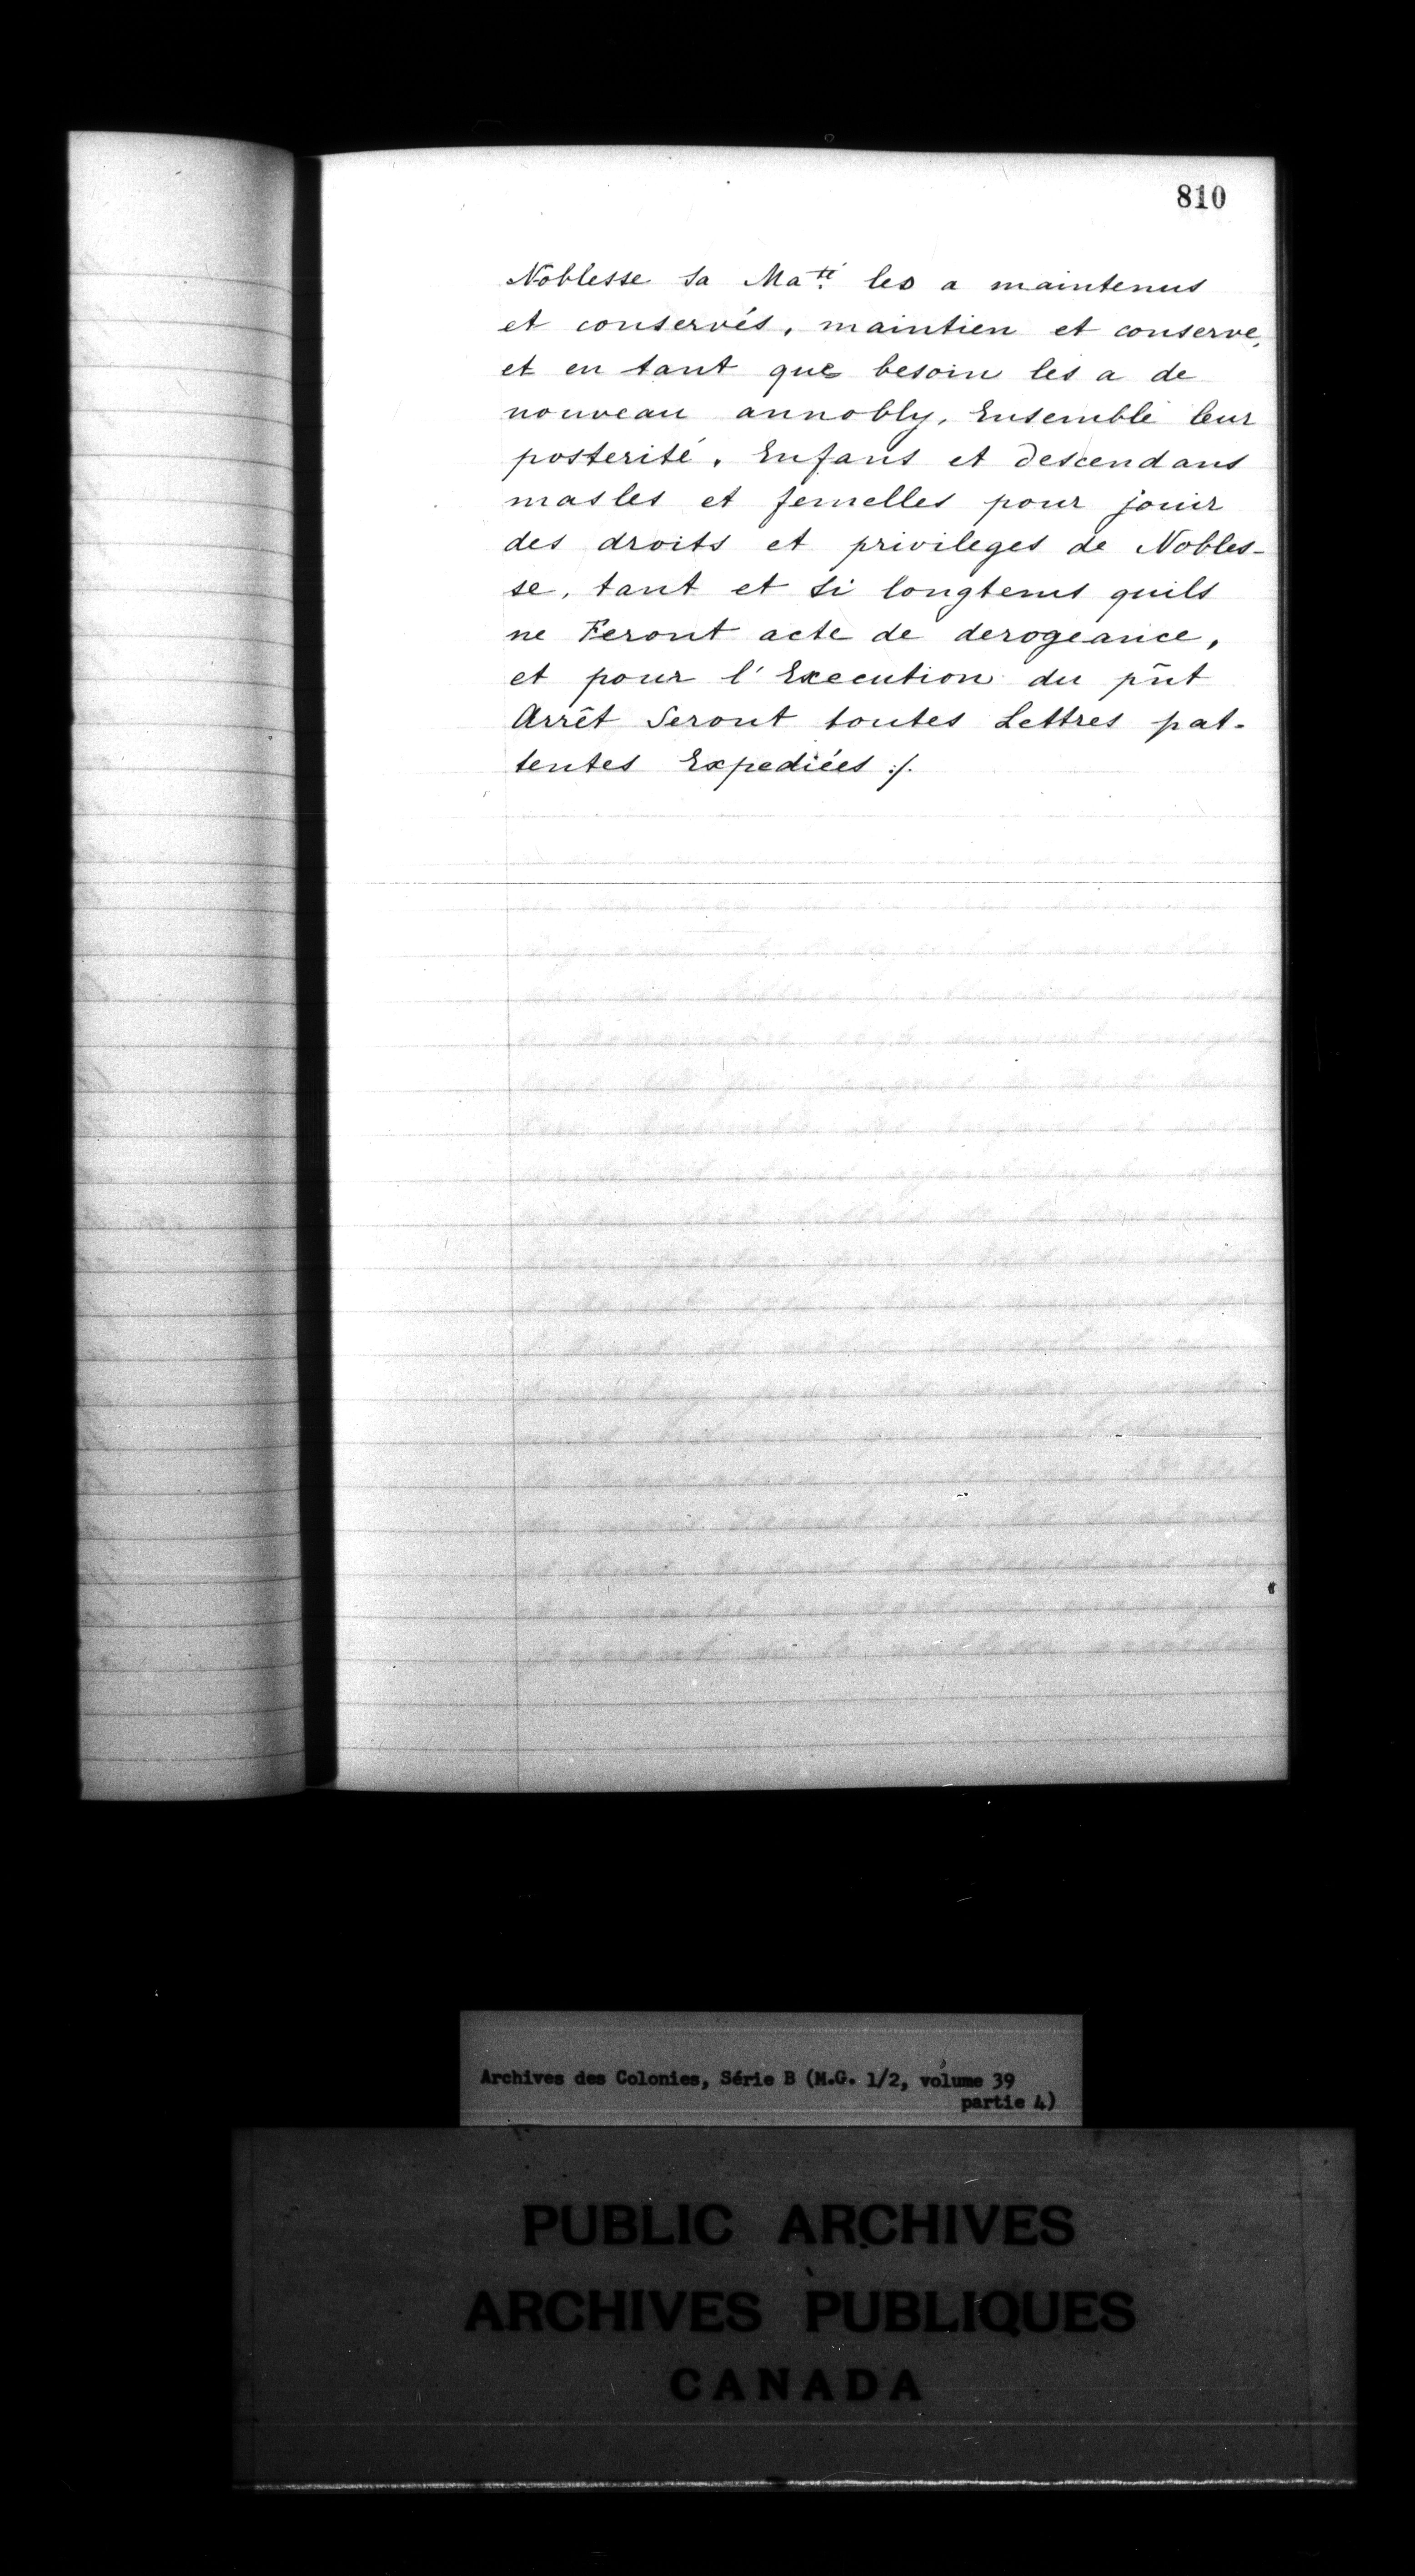 810
Noblesse Sa Ma.té les a maintenus
et conservés, maintien et conserve,
et en tant que besoin les a de
nouveau annobly, Ensemble leur
posterité, Enfans et descendans
masles et femelles pour jouir
des droits et privileges de Nobles-
se, tant et Si longtems quils
ne Feront acte de derogeance,
et pour l'Execution du pñt
Arrêt Seront toutes Lettres pat-
tentes Expediées :/.
Archives des Colonies, Série B (M.G. 1/2, volume 39
partie 4)
PUBLIC ARCHIVES
ARCHIVES PUBLIQUES
CANADA